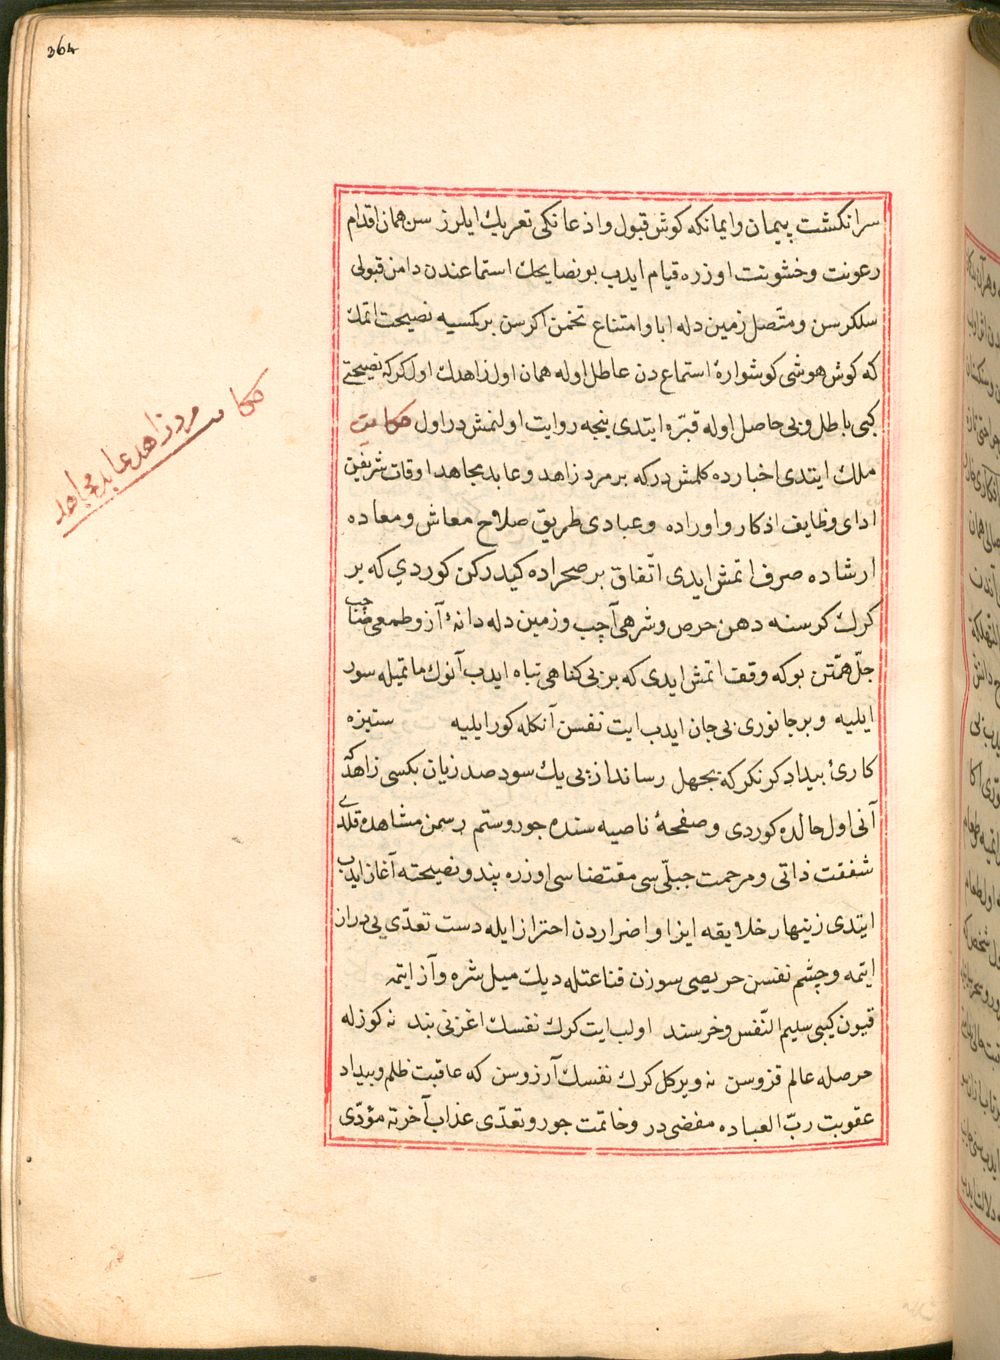 364
سر انكشت پیمان وایمانكه كوش قبول واذعانكی تعریك ایلرز سن همان اقدام
رعونت وخشونت اوزره قیام ایدب بونصایحك استماعندن دامن قبولی
سلكرسن ومتّصل زمین دله ابا وامتناع تخمن اكرسن بركمسیه نصیحت اتمك
كه كوش هوشی كوشوارهٔ استماع دن عاطل اوله همان اول زاهدك اول كركه نصیحتی
كبی باطل وبی حاصل اوله قبرّه ایتدی نیجه روایت اولنمش در اول حكایت
ملك ایتدی اخبارده كلمش در كه بر مرد زاهد وعابد مجاهد اوقات شریفن
ادای وظایف اذكار واوراده وعبادی طریق صلاح معاش ومعاده
ارشاده صرف اتمش ایدی اتّفاق بر صحراده كیدركن كوردی كه بر
كرك كرسنه دهن حرص وشرهی آچب وزمین دله دانهٔ آز وطمعی صاچب
جلّ همّتن بوكه وقف اتمش ایدی كه بر بی كناهی تباه ایدب آنوك ماتمیله سور
ایلیه وبر جانوری بی جان ایدب ایت نفسن آنكله كور ایلیه ستیزه
كاریٔ بیدادكر نكر كه بجهل رساند از پی یك سود صد زیان بكسی زاهد كه
آنی اول حالده كوردی وصفحهٔ ناصیه سنده جور وستم رسمن مشاهده قلدی
شفقت ذاتی ومرحمت جبلّی سی مقتضاسی اوزره پند ونصیحته آغاز ایدب
ایتدی زینهار خلایقه ایذا واضراردن احتراز ایله دست تعدّی یی دراز
ایتمه وچشم نفسن حریصی سوزن قناعتله دیك میل شره وآز ایتمه
قیون كیبی سلیم النّفس وخرسند اولب ایت كرك نفسك اغزنی بند نه كوزله
حرصله عالم قزوسن نه ویر كل كرك نفسك آرزوسن كه عاقبت ظلم وبیداد
عقوبت ربّ العباده مفضی در وخاتمت جور وتعدّی عذاب آخرته مؤدّی
حكایت مرد زاهد عابد مجاهد